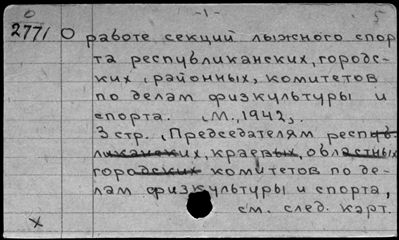 0 -1- 5
2771 О работе секций лыжного спор
та республиканских, городс-
ких, районных, комитетов
по делам физкультуры и
спорта. (М., 1942).
3 стр. (Председателям, респуб-
ликанских, краевых, областных
городских комитетов по де-
лам физкультуры и спорта,
см. след. карт.
x